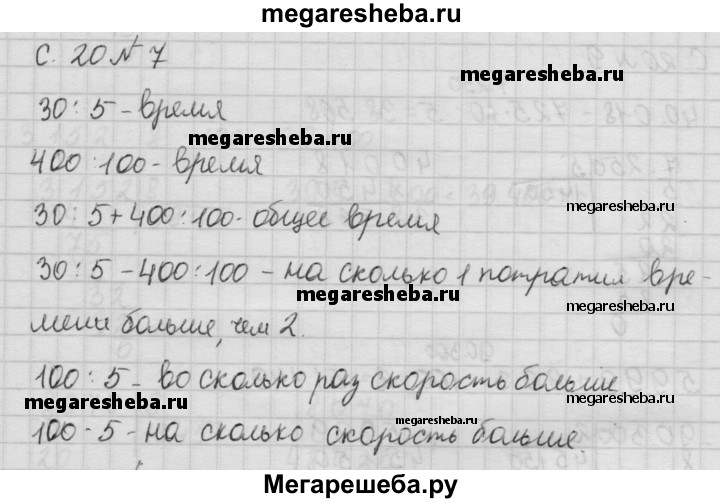 megaresheba.ru
С. 20 № 7
megaresheba.ru
30 : 5 - время
megaresheba.ru
400 : 100 - время
megaresheba.ru
30 : 5 + 400 : 100 - общее время
30 : 5 - 400 : 100 - на сколько 1 потратил вре-
megaresheba.ru
megaresheba.ru
мени больше, чем 2.
100 : 5 - во сколько раз скорость больше
megaresheba.ru
megaresheba.ru
100 - 5 - на сколько скорость больше.
Мегарешеба.ру